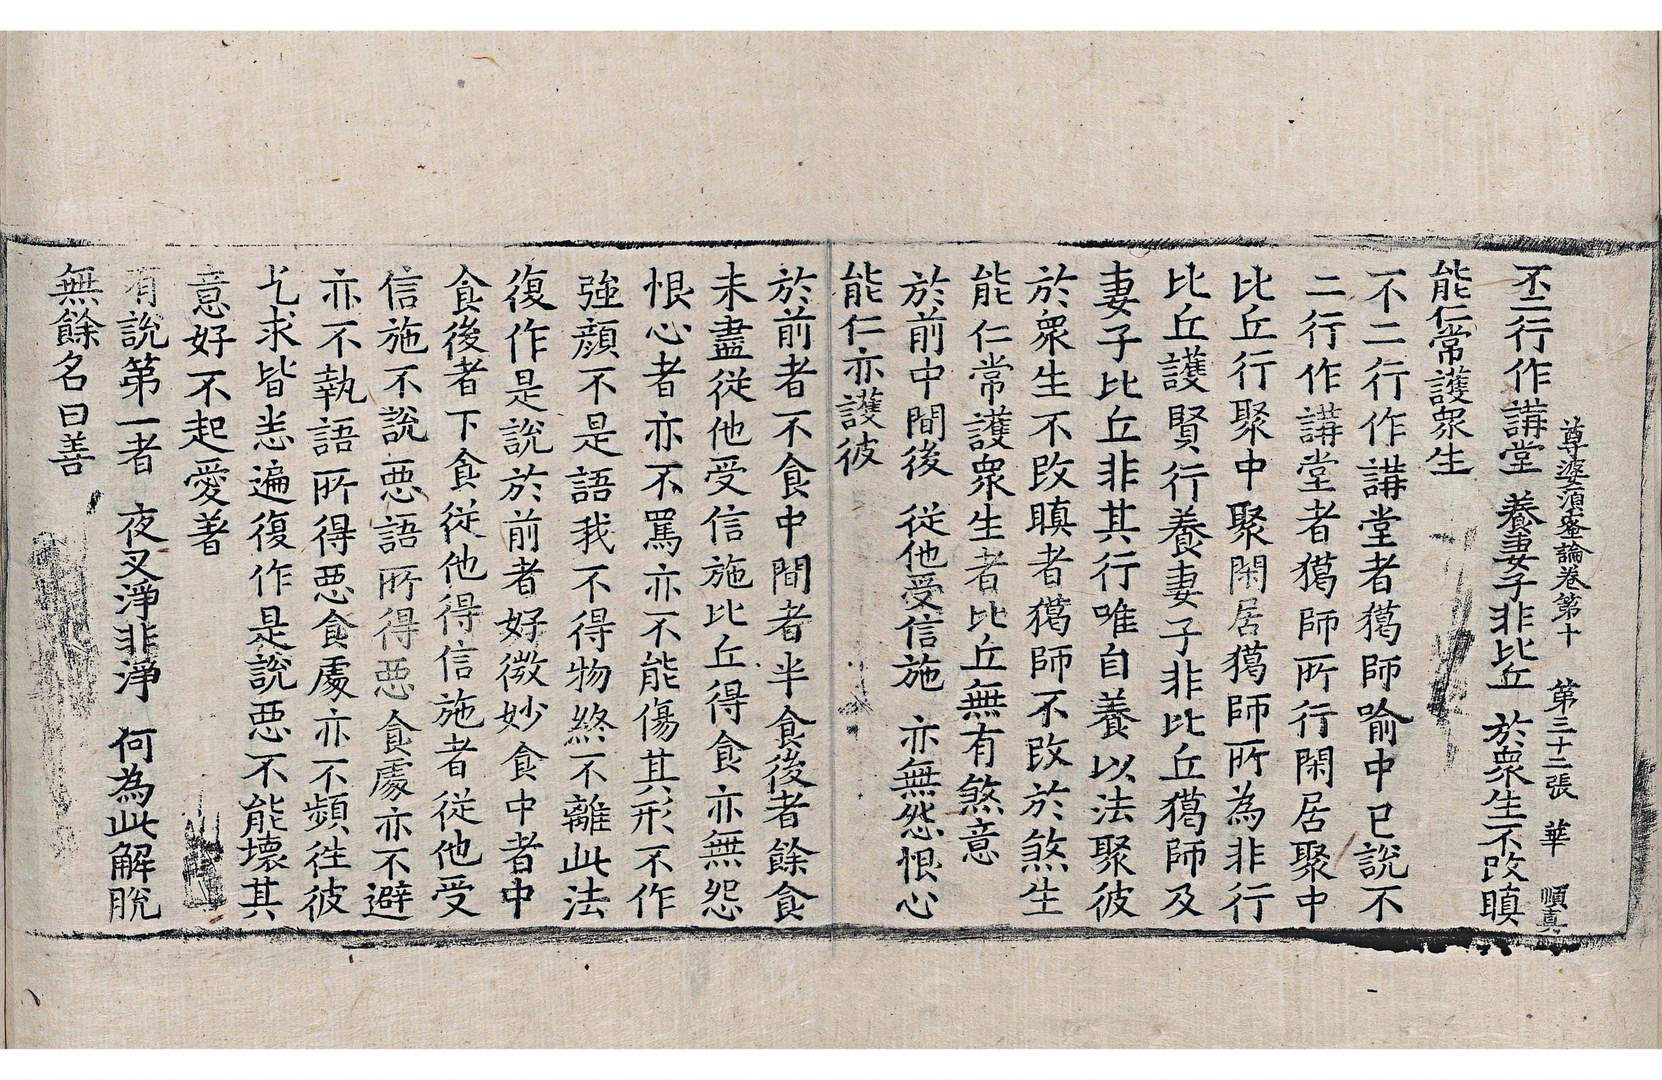 尊婆須蜜論卷第十　第三十二張　華　順真
不二行作講堂　養妻子非比丘　於衆生不改瞋
能仁常護衆生
不二行作講堂者獦師喻中已說不
二行作講堂者獦師所行閑居聚中
比丘行聚中聚閑居獦師所為非行
比丘護賢行養妻子非比丘獦師及
妻子比丘非其行唯自養以法聚彼
於衆生不改瞋者獦師不改於煞生
能仁常護衆生者比丘無有煞意
於前中間後　從他受信施　亦無怨恨心
能仁亦護彼
於前者不食中間者半食後者餘食
未盡從他受信施比丘得食亦無怨
恨心者亦不罵亦不能傷其形不作
強顏不是語我不得物終不離此法
復作是說於前者好微妙食中者中
食後者下食從他得信施者從他受
信施不說惡語所得惡食處亦不避
亦不執語所得惡食處亦不頻往彼
乞求皆悉遍復作是說惡不能壞其
意好不起愛著
有說第一者　夜叉淨非淨　何為此解脫
無餘名曰善